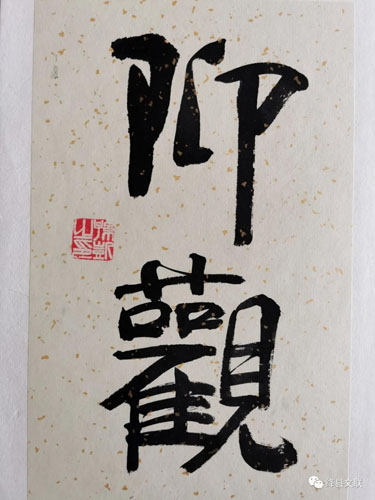 仰
觀
绛县文联